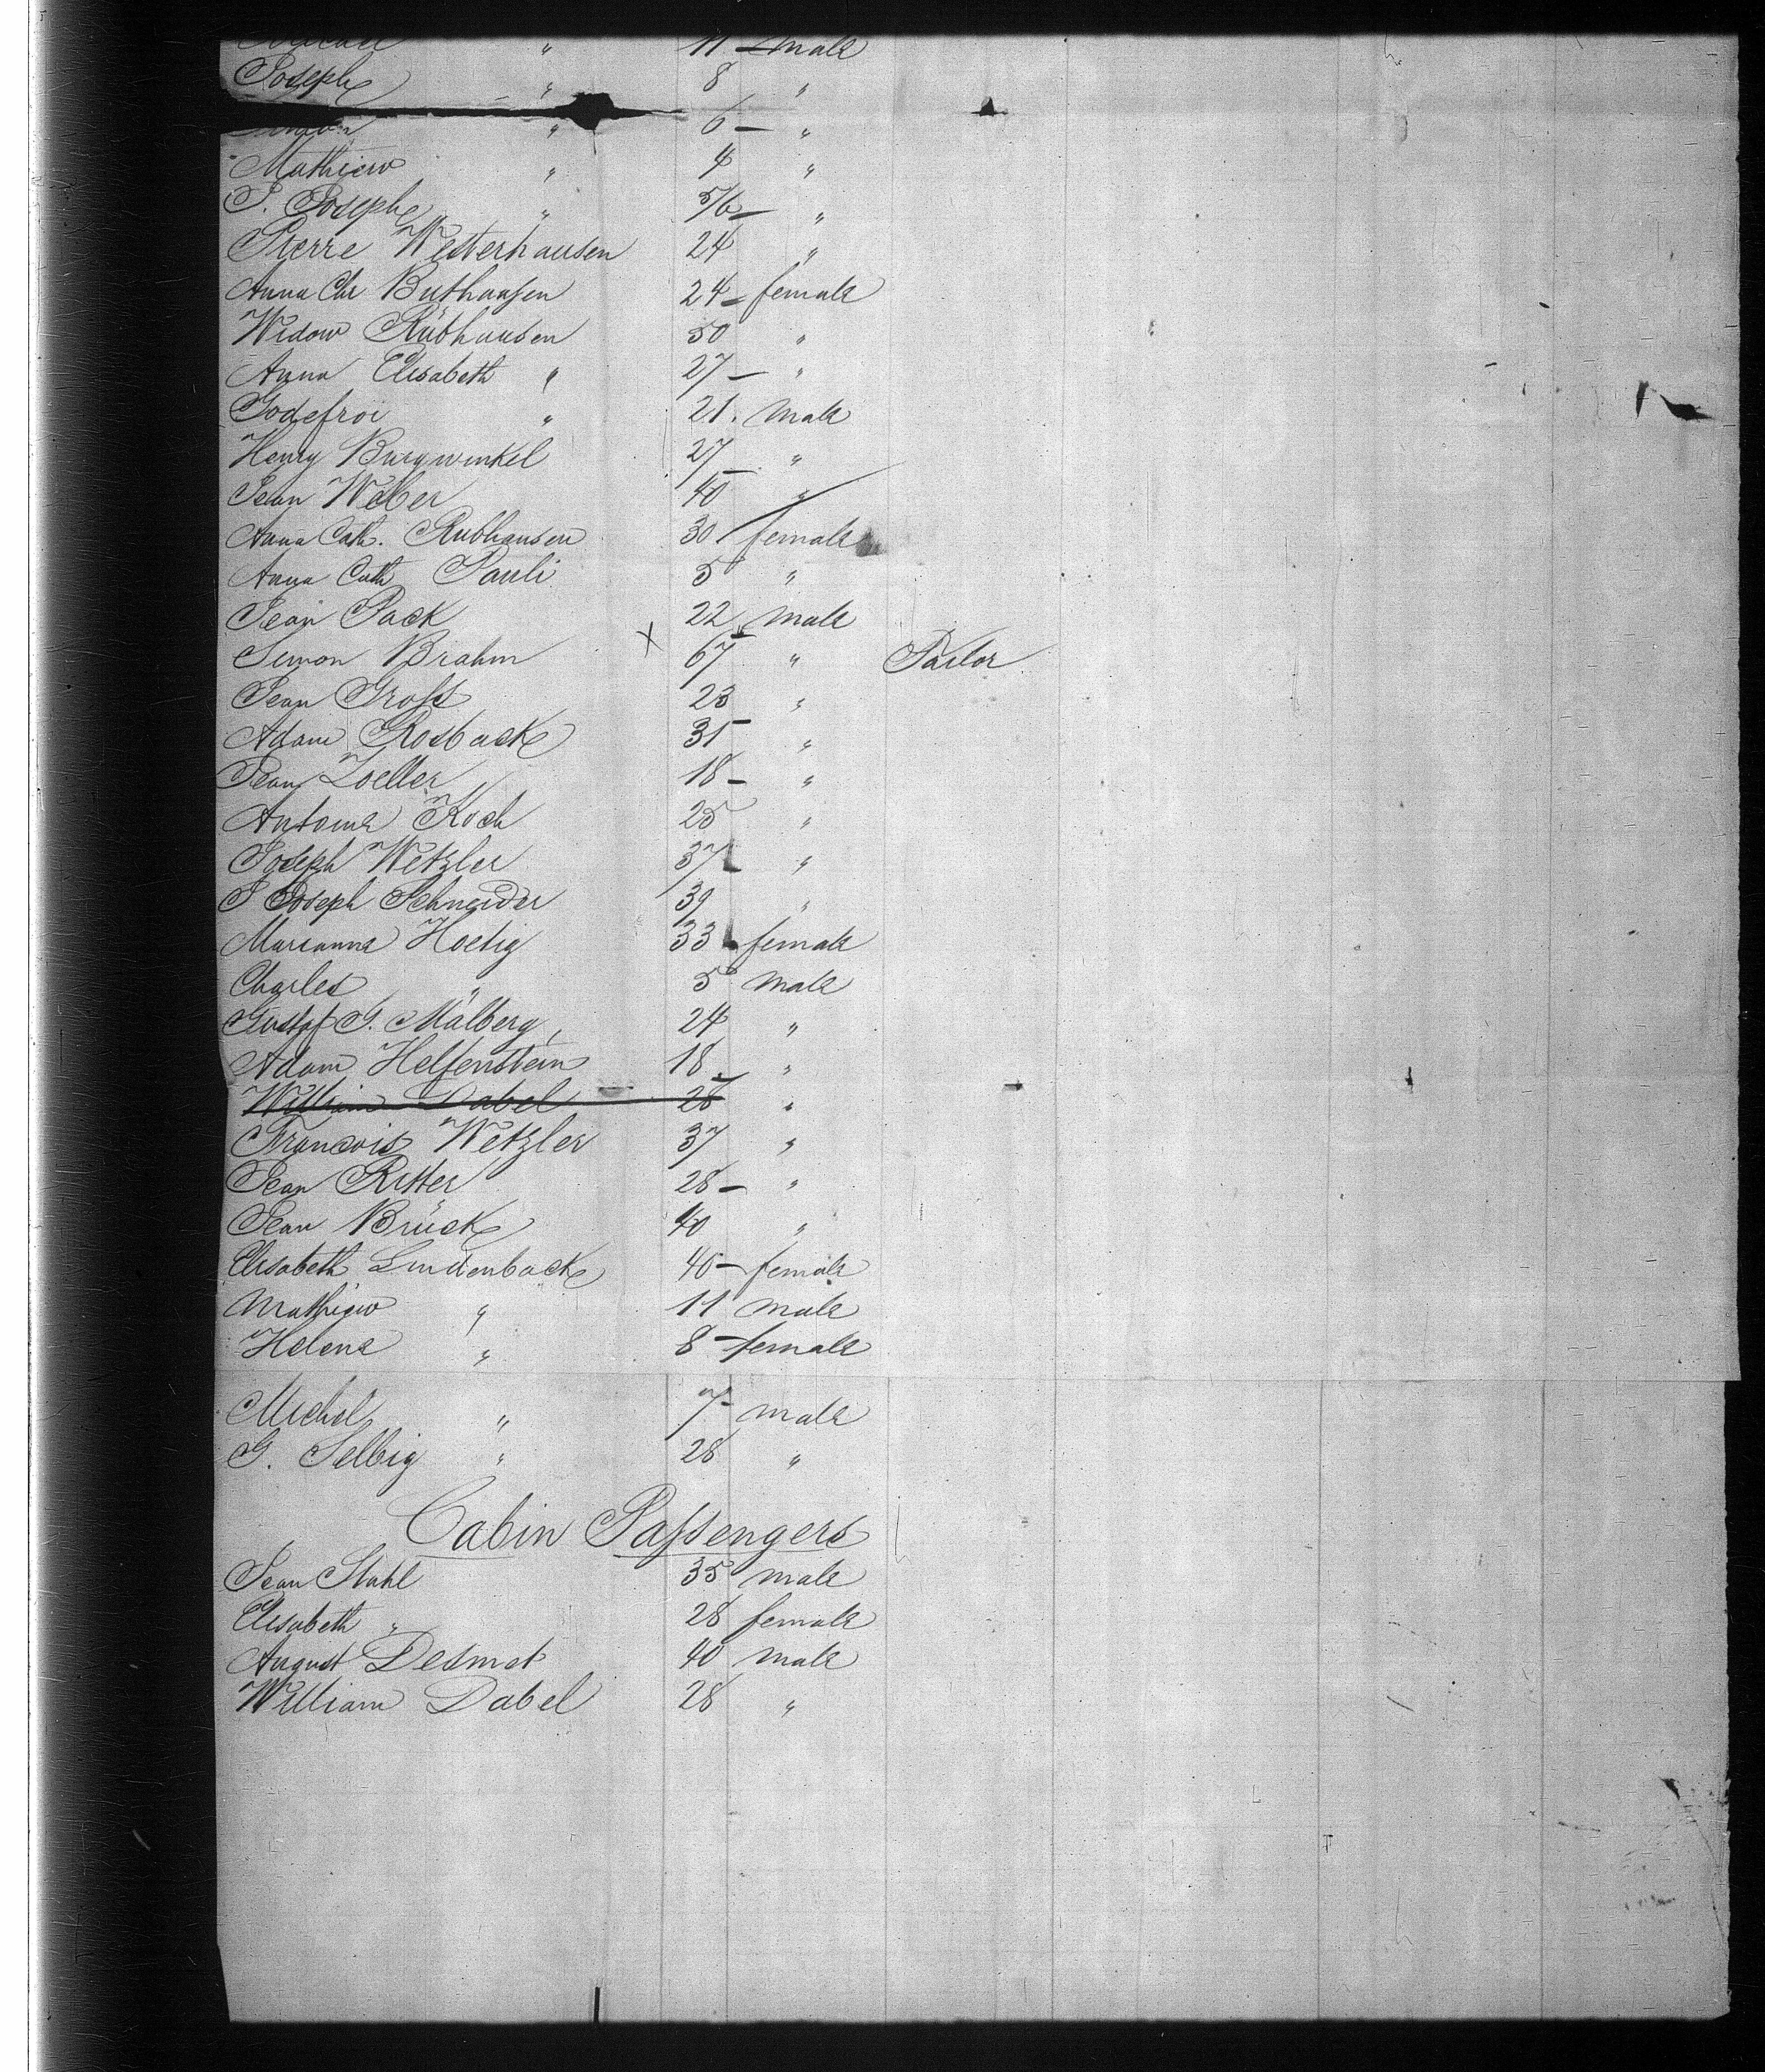 " 11 male
Joseph " 8 "
" 6 "
Mathieu " 4 "
J. Joseph " 5/6 "
Pierre Westerhausen 24 "
Anna Chr Buthausen 24 female
Widow Rübhausen 50 "
Anna Elisabeth " 27 "
Godefroi " 21 male
Henry Burgwinkel 27 "
Jean Weber 40 "
Anna Cath. Rubhausen 30 female
Anna Cath Pauli 5 "
Jean Pack 22 male
Simon Brahm x 67 " Tailor
Jean Gross 23 "
Adam Rosback 31 "
Jean Zoeller 18 "
Antoine Koch 25 "
Joseph Wetzler 37 "
J Joseph Schneider 39 "
Marianne Hoetig 33 female
Charles " 5 male
Gustaf G. Mälberg, 24 "
Adam Helfenstein 18 "
William Dabel 28 "
Francois Wetzler 37 "
Jean Ritter 28 "
Jean Brück 40 "
Elisabeth Lindenback 40 female
Mathieu " 11 male
Helene " 8 female
Michel " 7 male
G. Selbig " 28 "
Cabin Passengers
Jean Stahl 35 male
Elisabeth " 28 female
August Desmet 40 male
William Dabel 28 "